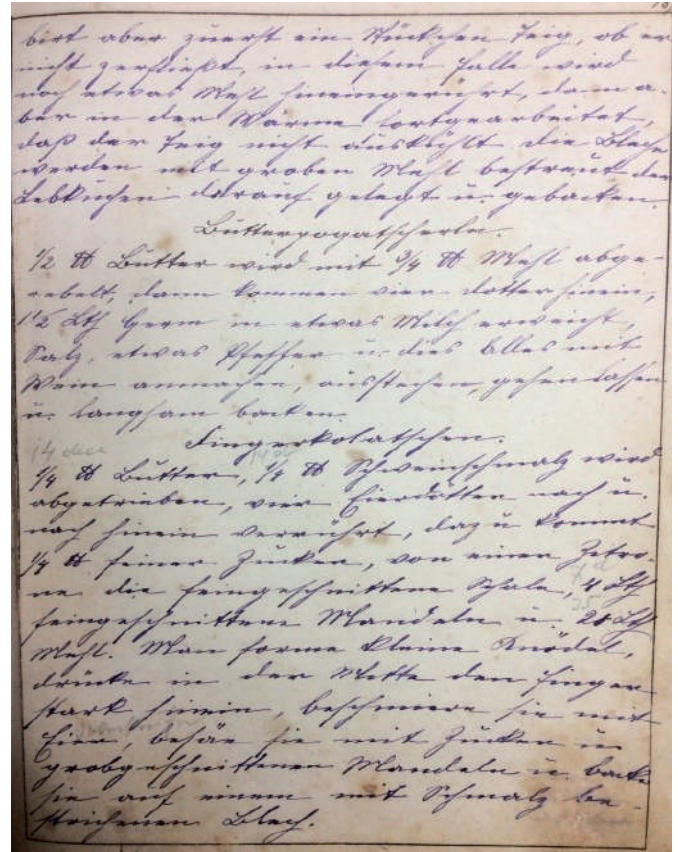 birt aber zuerst ein Stückchen Teig, ob er
nicht zerfließt, in diesem Falle wird
noch etwas Mehl hineingerührt, dann a-
ber in der Wärme fortgearbeitet,
daß der Teig nicht auskühlt die Bleche
werden mit groben Mehl bestreut der
Lebkuchen darauf gelegt u. gebacken.
Butterpogatscherln.
1/2 ℔ Butter wird mit 3/4 ℔ Mehl abge-
rebelt, dann kommen vier Dotter hinein,
1 1/2 Lth Germ in etwas Milch erweicht,
Salz, etwas Pfeffer u. dies Alles mit
Wein anmachen, ausstechen, gehen lassen
u. langsam backen.
Fingerkolatschen.
14 deca
1/4 ℔ Butter, 1/4 ℔ Schweinschmalz wird
abgetrieben, vier Eierdotter nach u.
nach hinein verrührt, dazu kommt
1/4 ℔ feiner Zucker, von einer Zitro-
ne die feingeschnittene Schale, 4 Lth
feingeschnittene Mandeln u. 20 Lth
Mehl. Man forme kleine Knödel,
drücke in der Mitte den Finger
stark hinein, beschmiere sie mit
Eier, besäe sie mit Zucker u.
grobgeschnittenen Mandeln u. backe
sie auf einem mit Schmalz be-
strichenen Blech.